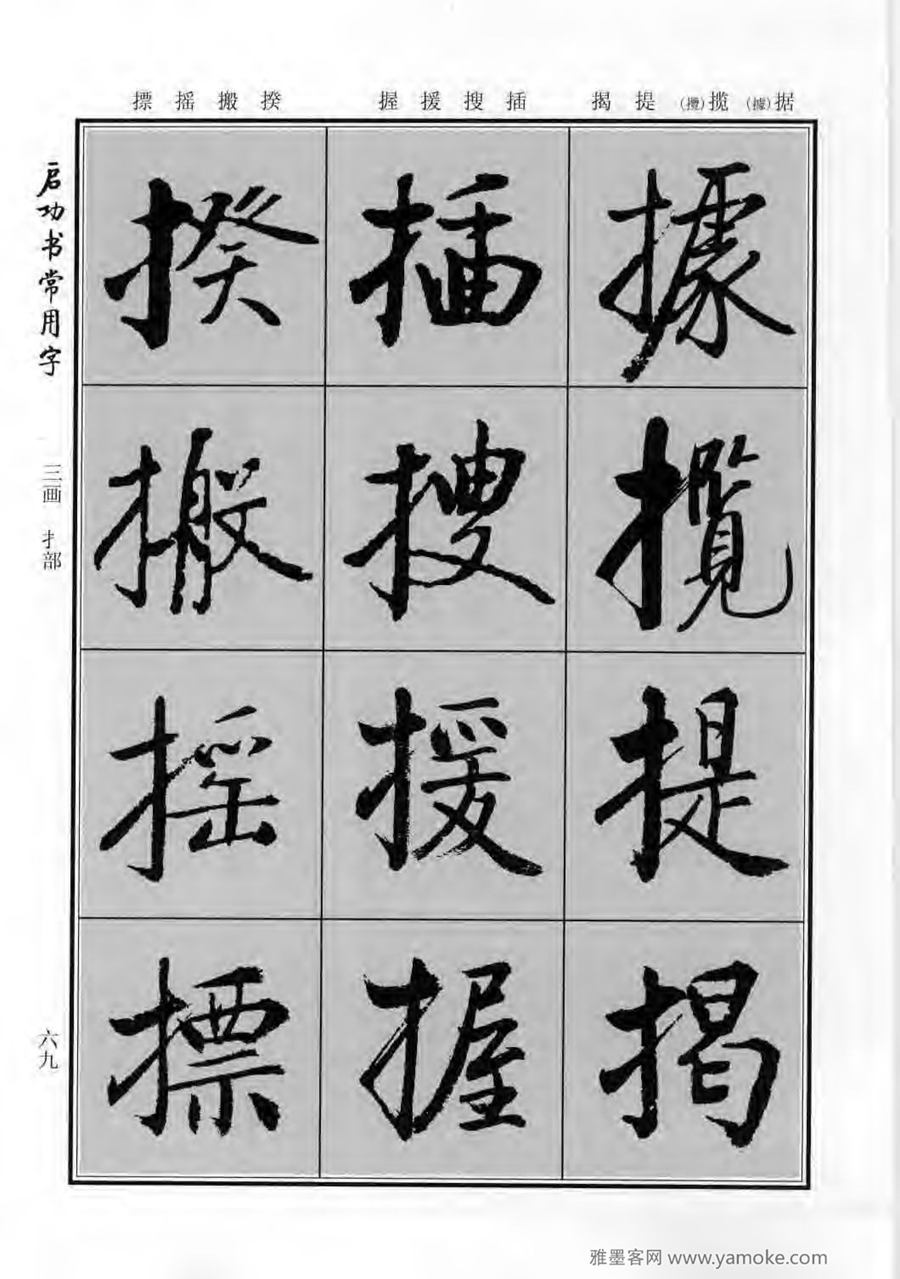 据(據) 揽(攬) 提 揭 插 搜 援 握 揆 搬 摇 摽
據 攬 提 揭
插 搜 援 握
揆 搬 摇 摽
启功书常用字
三画 扌部
六九
雅墨客网 www.yamoke.com